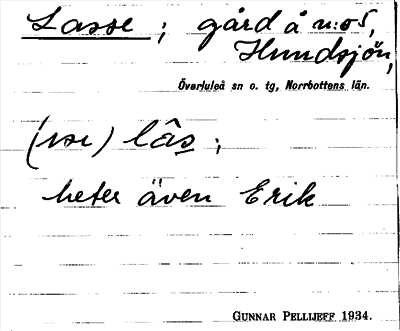 Lasse; gård å n:o 5,
Hundsjön,
Överluleå sn o. tg, Norrbottens län.
(nse) lâs;
heter även Erik
GUNNAR PELLIJEFF 1934.